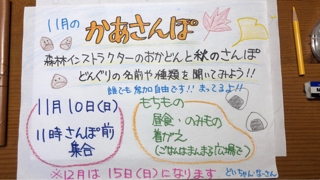 11月の かあさんぽ
森林インストラクターのおかどんと秋のさんぽ
どんぐりの名前や種類を聞いてみよう!!
誰でも参加自由です!! まってるよ!!
11月10日(日)
11時さんぽ前
集合
もちもの
昼食・のみもの
着がえ
(ごはんはまんまる広場で)
※12月は15日(日)になります